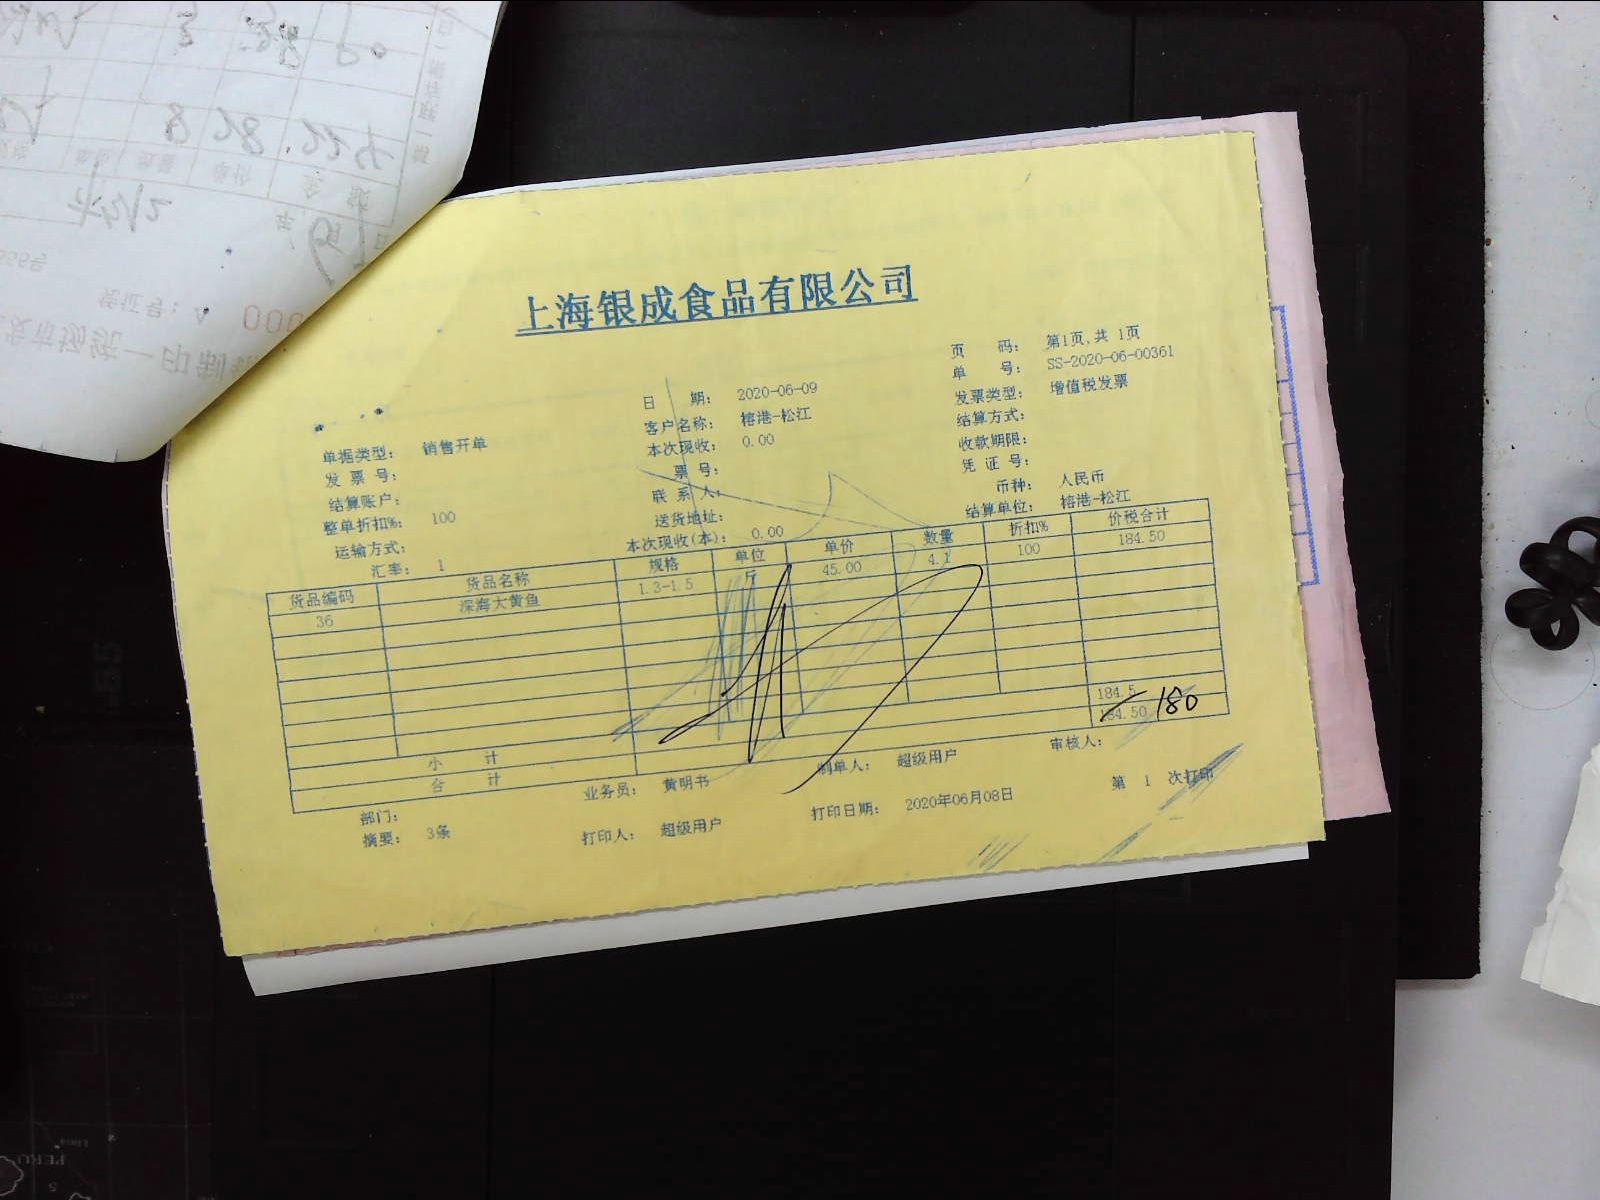 上海银成食品有限公司
页 码: 第1页,共 1页
单 号: SS-2020-06-00361
日 期: 2020-06-09
发票类型: 增值税发票
客户名称: 榕港-松江
结算方式:
单据类型: 销售开单
本次现收: 0.00
收款期限:
发 票 号:
票 号:
凭 证 号:
结算账户:
联 系 人:
币种: 人民币
整单折扣%: 100
送货地址:
结算单位: 榕港-松江
运输方式:
本次现收(本): 0.00
汇率: 1
货品编码 货品名称 规格 单位 单价 数量 折扣% 价税合计
36 深海大黄鱼 1.3-1.5 斤 45.00 4.1 100 184.50
小 计 184.5
合 计 184.50 180
部门: 业务员: 黄明书 制单人: 超级用户 审核人:
摘要: 3条 打印人: 超级用户 打印日期: 2020年06月08日 第 1 次打印